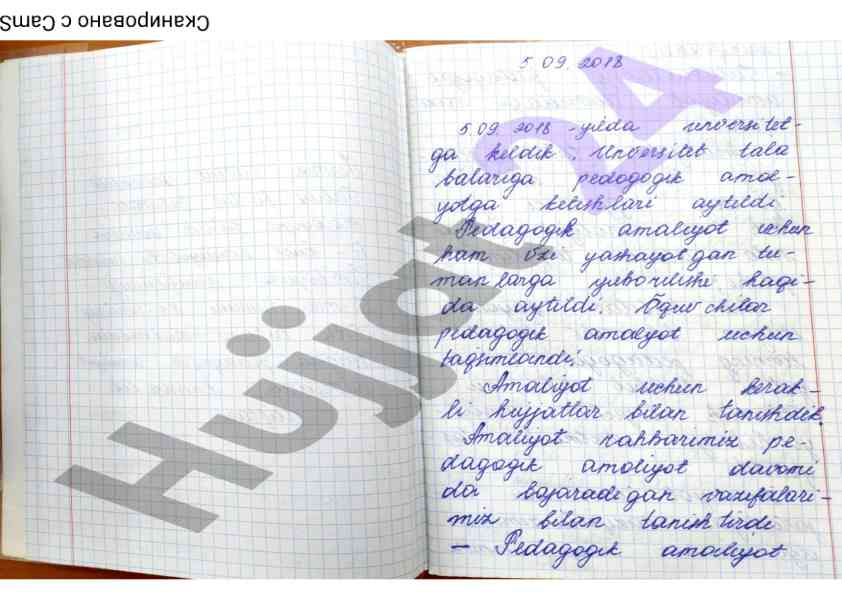 Сканировано с CamS
5.09.2018
5.09.2018 -yilda unversitet-
ga keldik. Unversitet tala
balariga pedogogik amol-
yotga ketishlari aytildi.
Pedagogik amaliyot uchun
ham ōzi yashayotgan tu-
manlarga yuborilishi haqi-
da aytildi. Ōquvchilar
pedagogik amalyot uchun
taqsimlandi.
Amaliyot uchun kerak-
li hujjatlar bilan tanishdik.
Amaliyot rahbarimiz pe-
dagogik amaliyot davomi
da bajaradigan vazifalari-
miz bilan tanishtirdi
- Pedagogik amaliyot
Hujjat 24